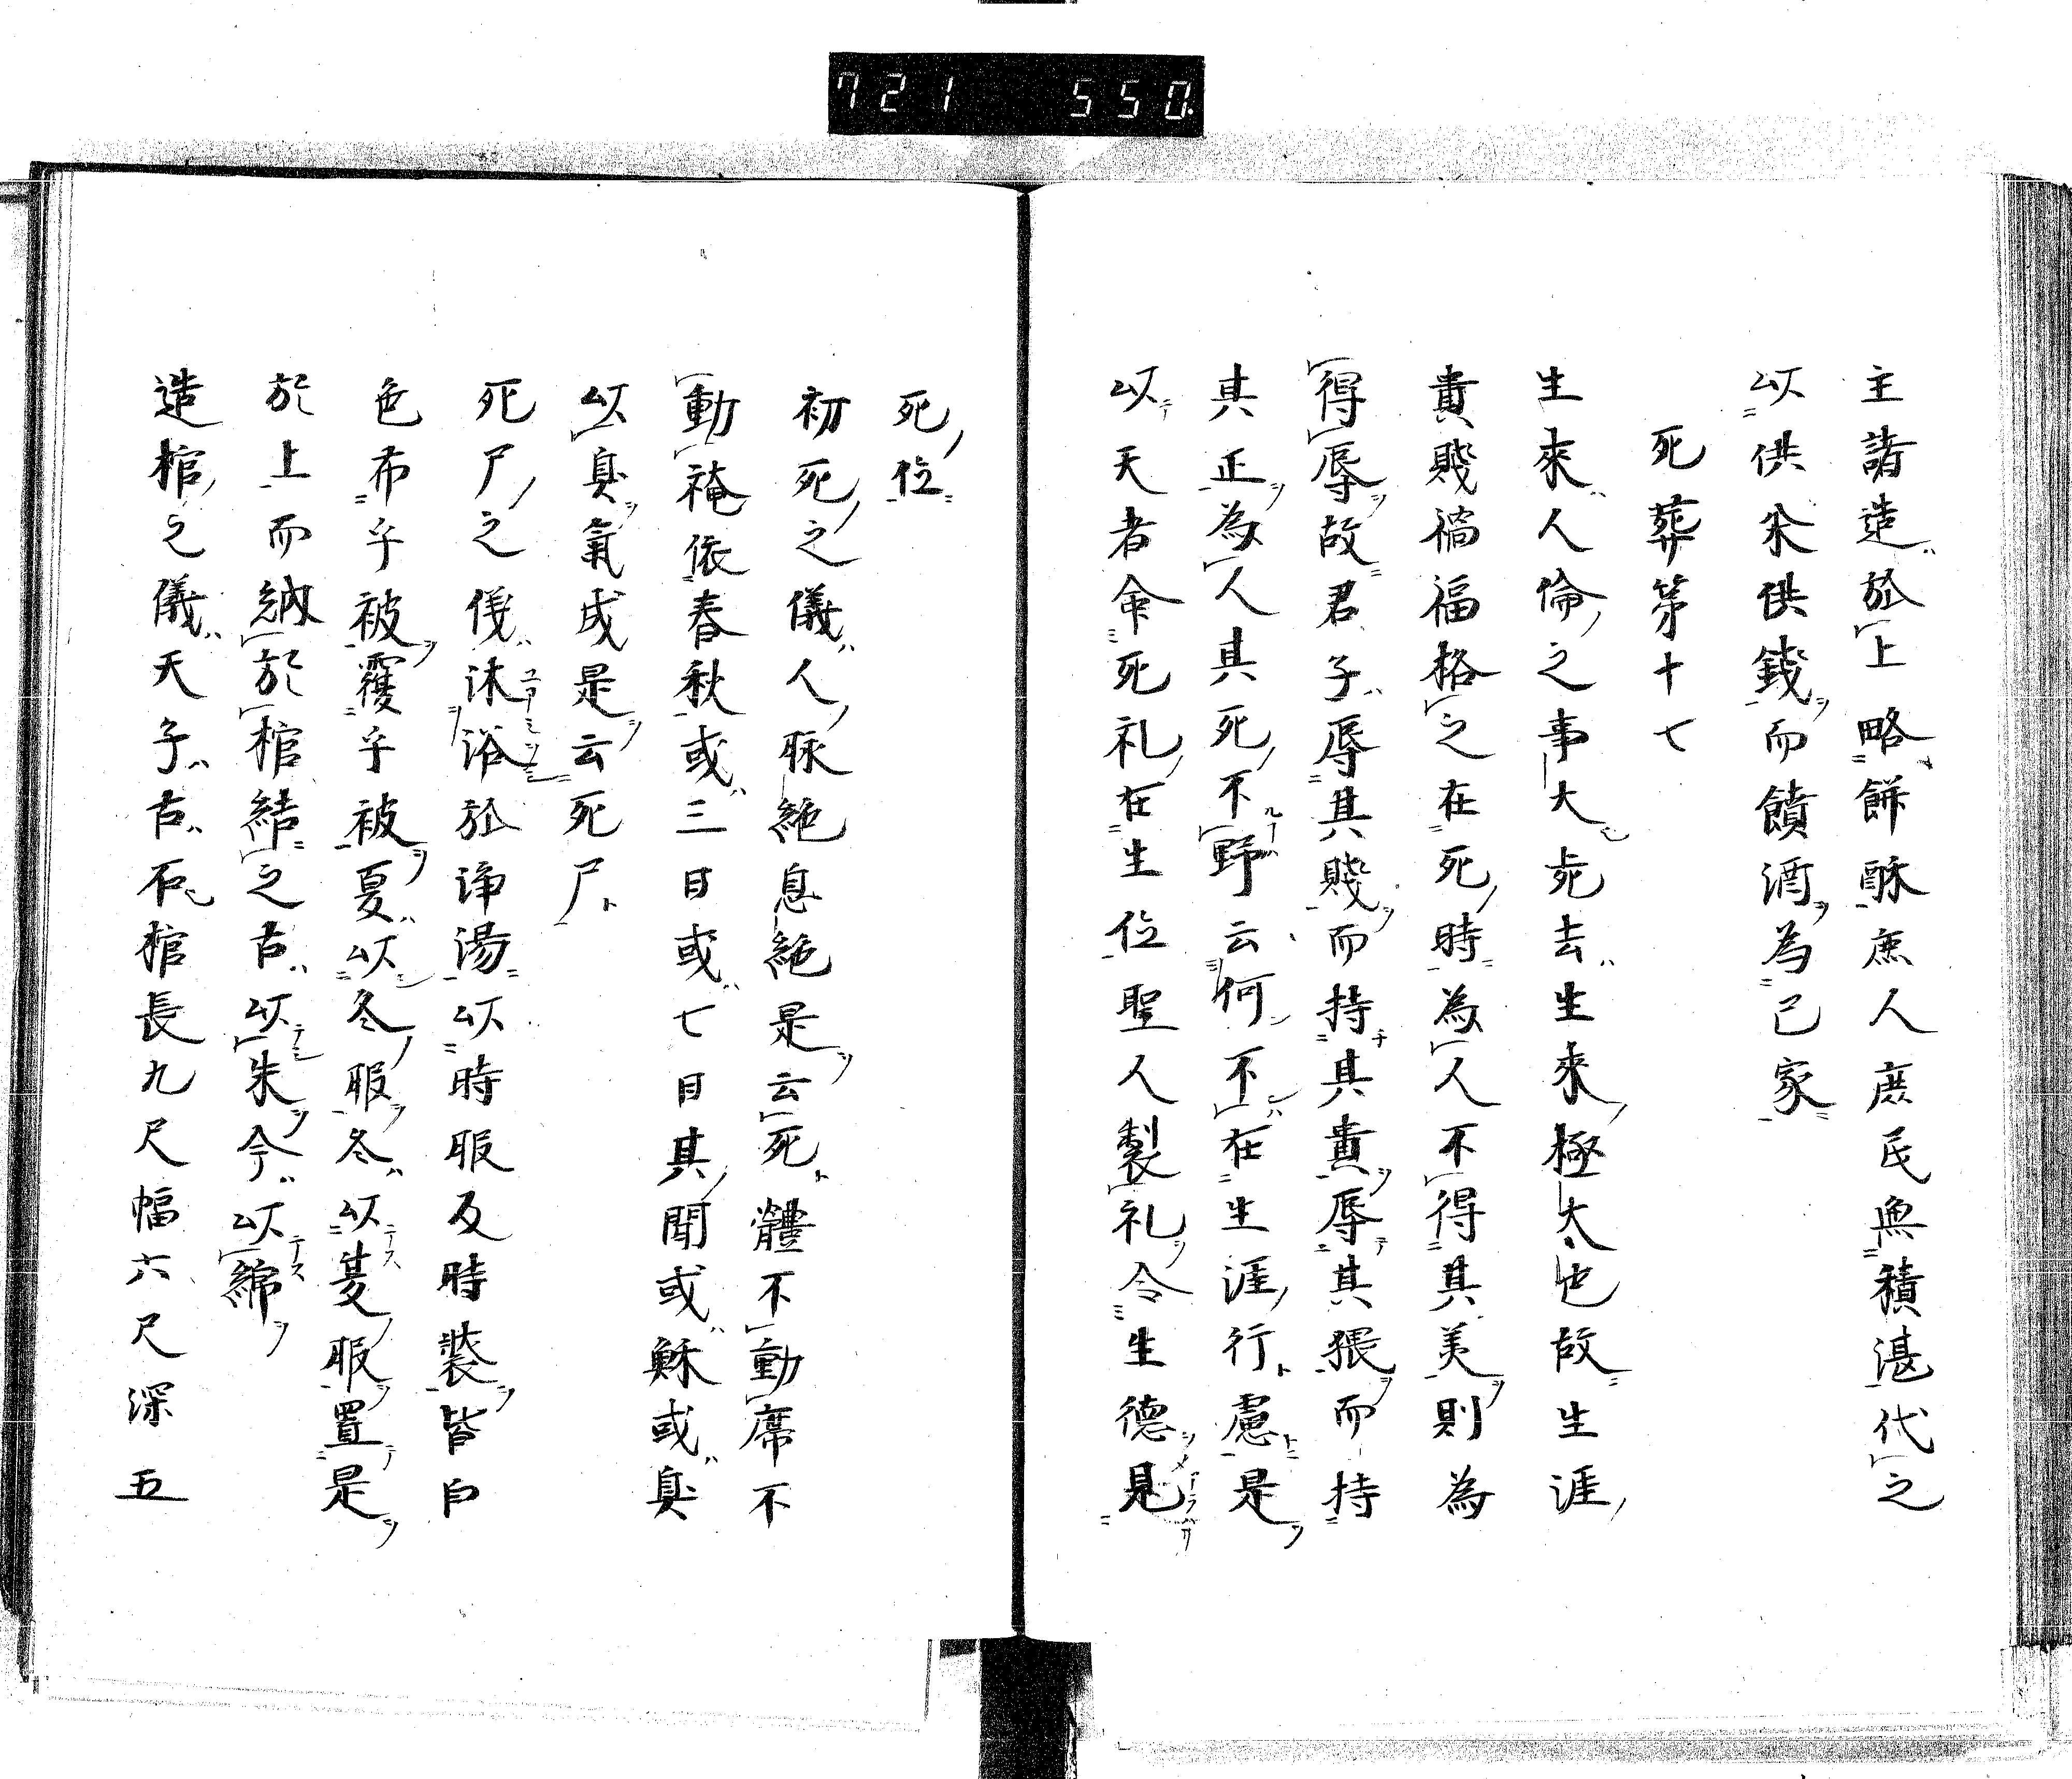 721 550
主諸造於上略餅酥庶人庶民無積湛代之
以供米供錢而饋酒為己家
死葬第十七
生來人倫之事大死去生來極大也故生涯
貴賤禍福格之在死時為人不得其美則為
得辱故君子辱其賤而持其貴辱其猥而持
其正為人其死不野云何不在生涯行慮是
以天者命死礼在生位聖人製礼令生德見
死位
初死之儀人脉絶息絶是云死體不動席不
動掩依春秋或三日或七日其間或穌或臭
以臭氣成是云死尸
死尸之儀沐浴於浄湯以時服及時裝皆白
色布乎被覆乎被夏以冬服冬以夏服置是
於上而納於棺結之古以朱今以綿
造棺之儀天子古石棺長九尺幅六尺深五